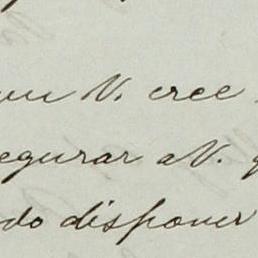 V. cree
egurar a V. q
do disponer